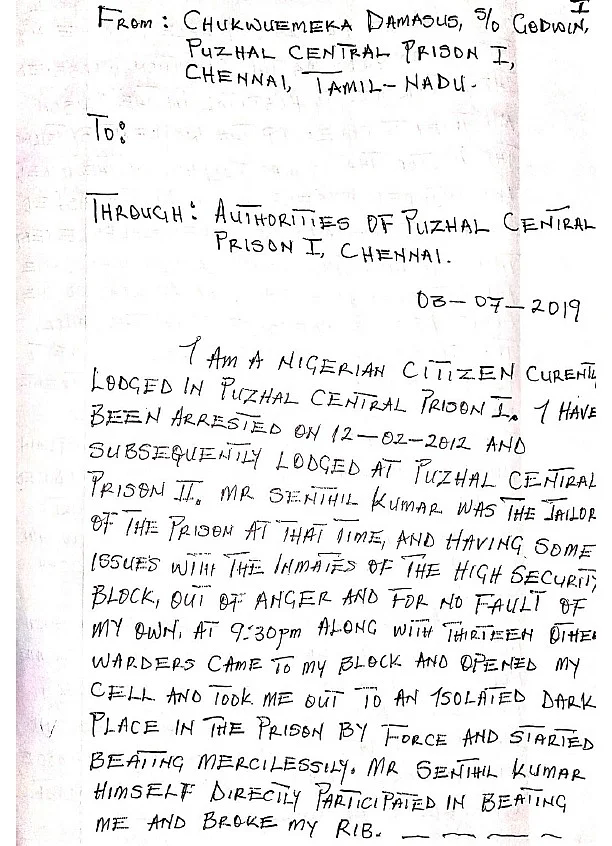 I
From: Chukwuemeka Damasus, S/o Godwin,
Puzhal Central Prison I,
Chennai, Tamil-Nadu.
To:
Through: Authorities of Puzhal Central
Prison I, Chennai.
03-07-2019
I am a Nigerian citizen curently
lodged in Puzhal Central Prison I. I have
been arrested on 12-02-2012 and
subsequently lodged at Puzhal Central
Prison II. Mr Senthil Kumar was the Jailor
of the Prison at that time, and having some
issues with the inmates of the high security
block, out of anger and for no fault of
my own, at 9:30pm along with thirteen othe
warders came to my block and opened my
cell and took me out to an isolated dark
place in the Prison by force and started
beating mercilessly. Mr Senthil Kumar
himself directly participated in beating
me and broke my rib. — — — —